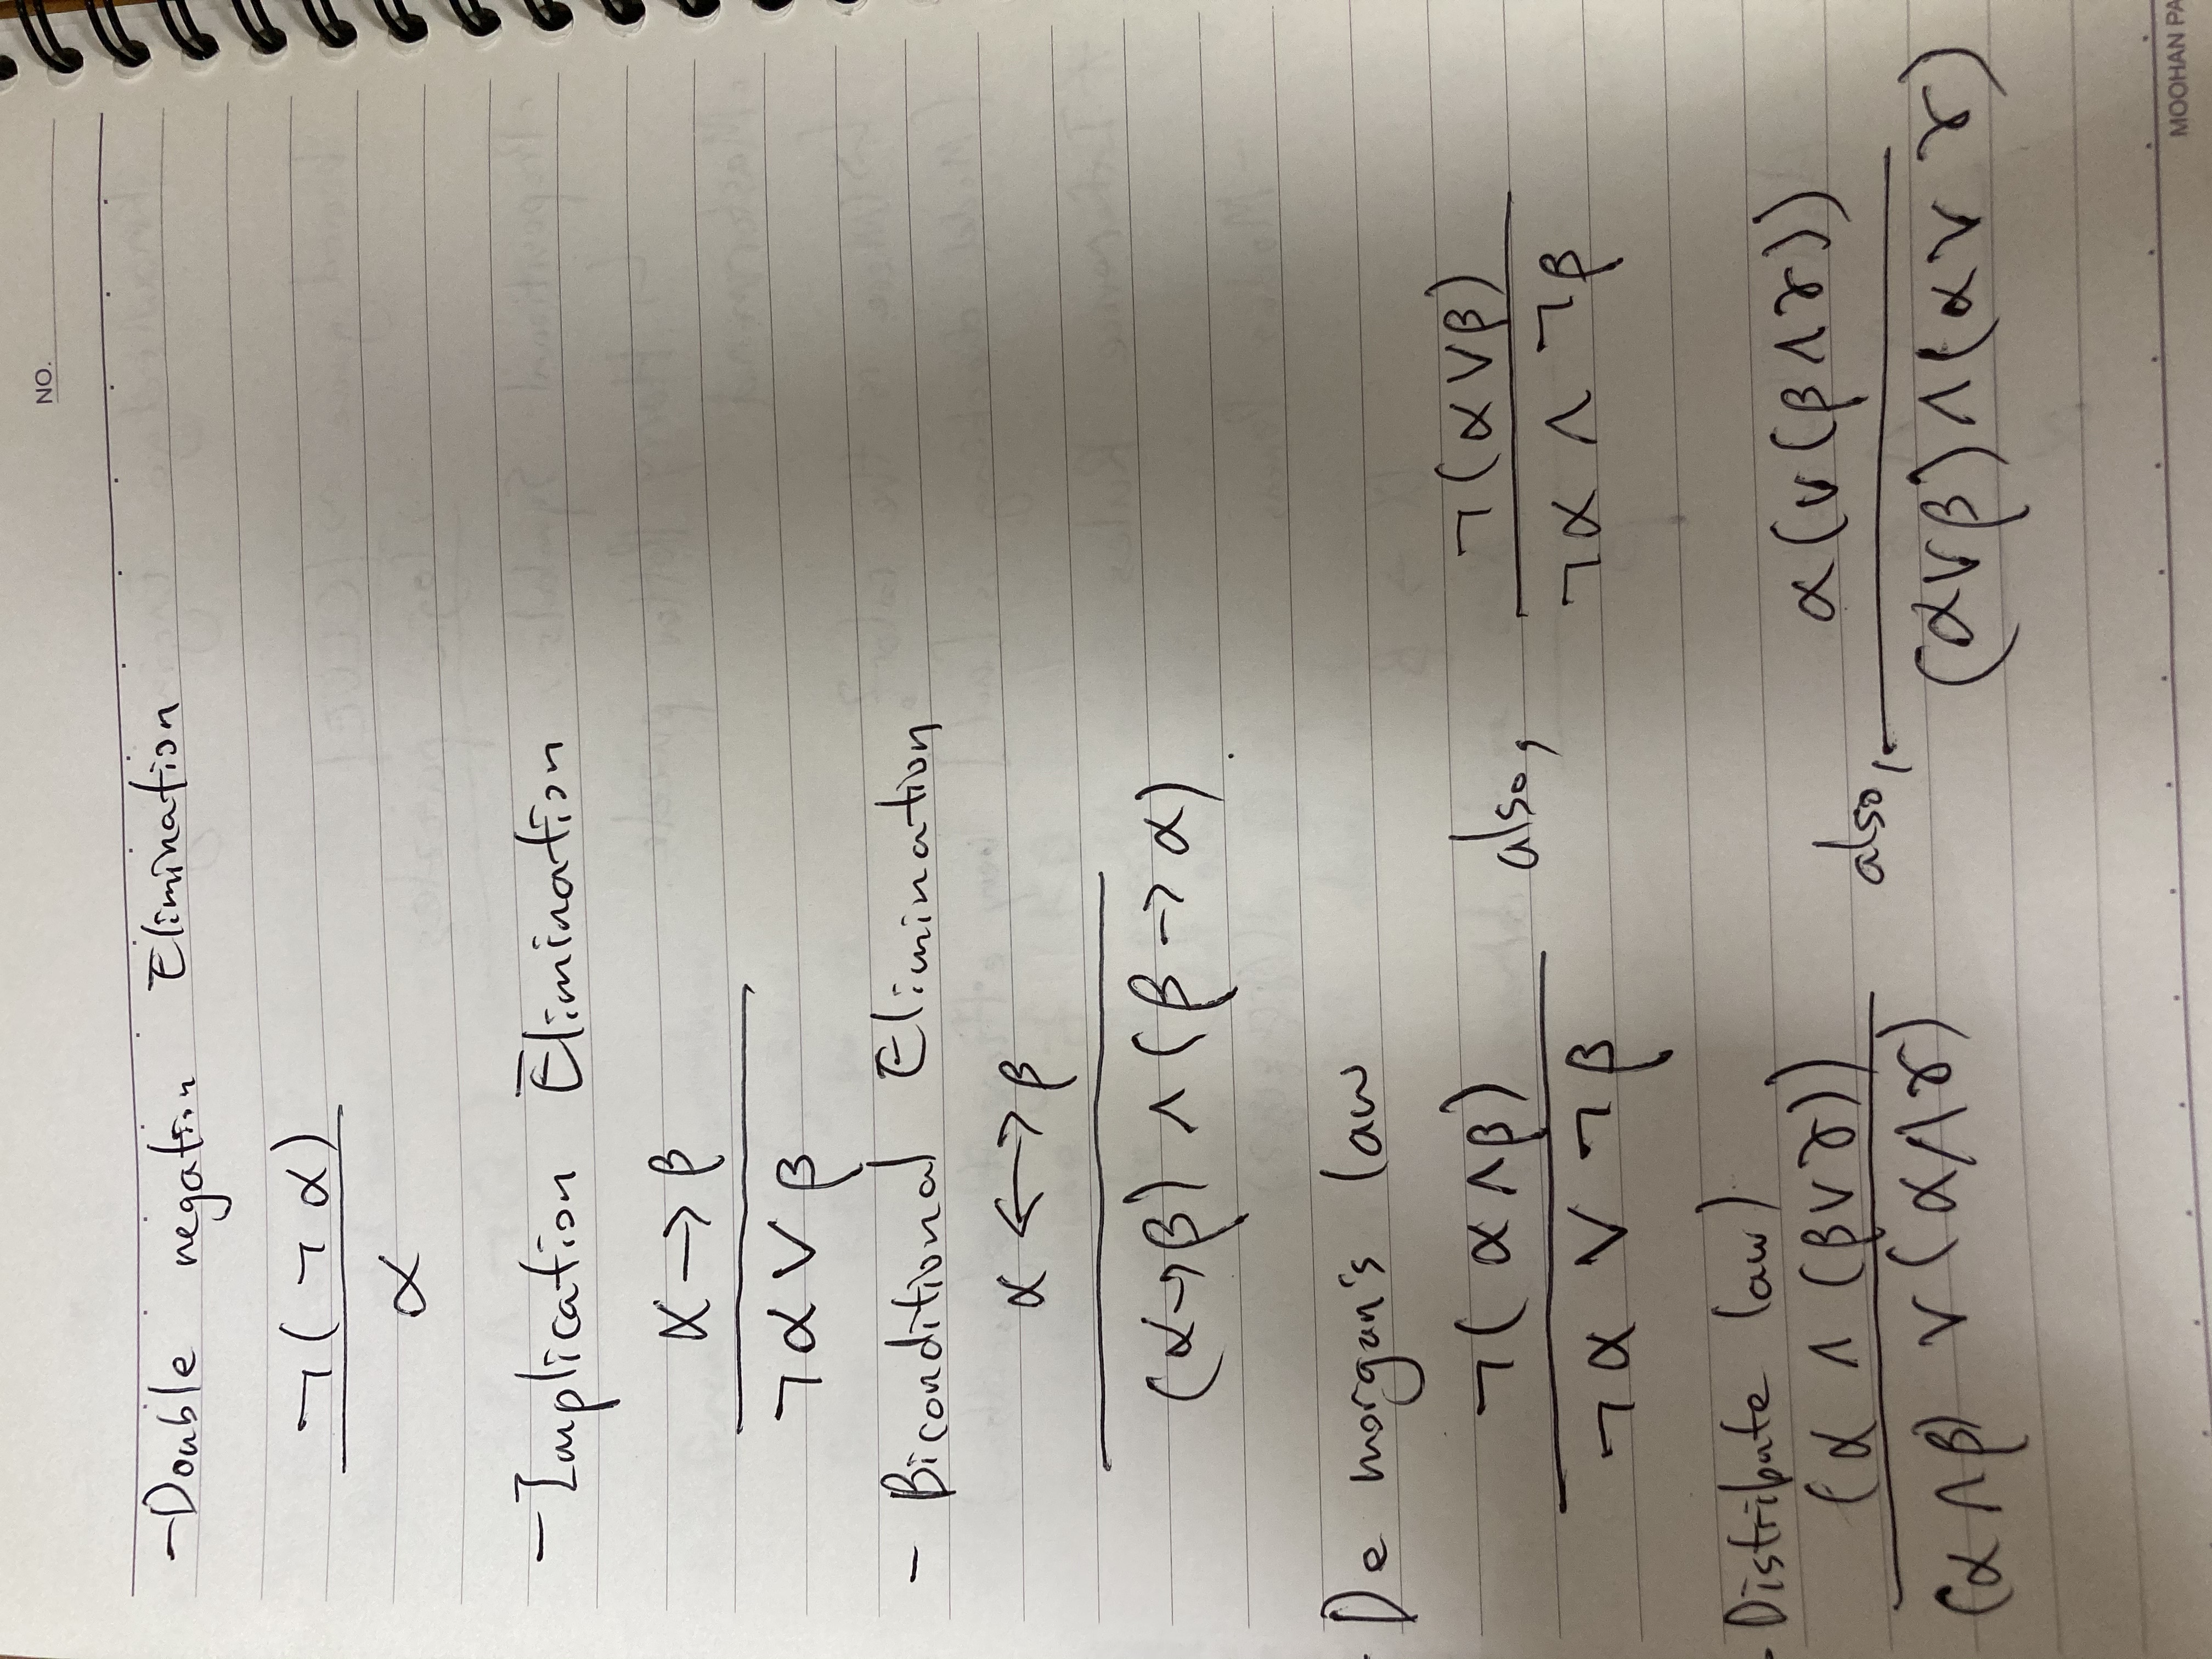 NO.
-Double negation Elimination
¬(¬α)
α
-Implication Elimination
α→β
¬α∨β
- Biconditional Elimination
α<->β
(α->β)∧(β->α).
-De morgan's law
¬(α∧β) also, ¬(α∨β)
¬α∨¬β ¬α∧¬β
-Distribute law)
(α∧(β∨γ)) also, α(∨(β∧γ))
(α∧β)∨(α∧γ) (α∨β)∧(α∨γ)
MOOHAN PA